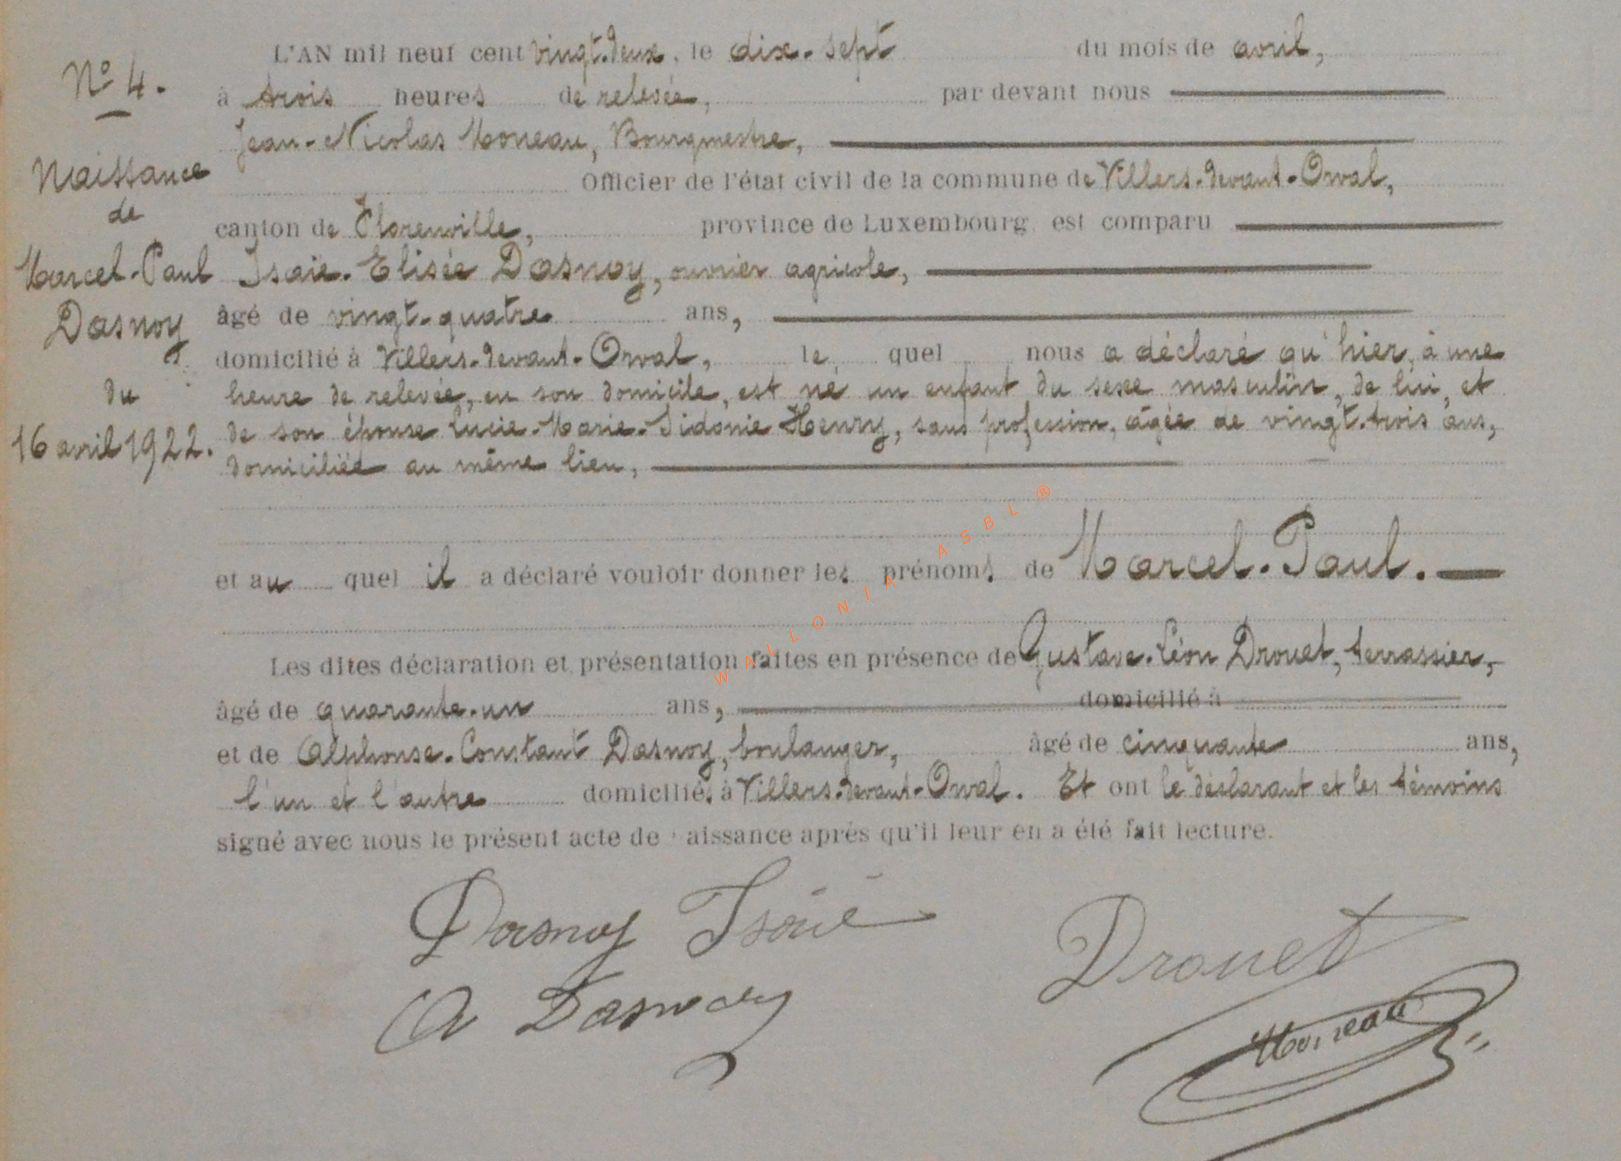 N° 4.
Naissance
de
Marcel-Paul
Dasnoy
du
16 avril 1922.
L'AN mil neuf cent vingt-deux, le dix-sept du mois de avril,
à trois heures de relevée, par devant nous
Jean-Nicolas Moneau, Bourgmestre,
Officier de l'état civil de la commune de Villers-devant-Orval,
canton de Florenville, province de Luxembourg est comparu
Isaïe-Elisée Dasnoy, ouvrier agricole,
âgé de vingt-quatre ans,
domicilié à Villers-devant-Orval, le quel nous a déclaré qu'hier, à une
heure de relevée, en son domicile, est né un enfant du sexe masculin, de lui, et
de son épouse Lucie-Marie-Sidonie Henry, sans profession, âgée de vingt-trois ans,
domiciliée au même lieu,
et au quel il a déclaré vouloir donner les prénoms de Marcel-Paul.
Les dites déclaration et présentation faites en présence de Gustave-Léon Drouet, terrassier,
âgé de quarante-un ans, domicilié à
et de Alphonse-Constant Dasnoy, boulanger, âgé de cinquante ans,
l'un et l'autre domiciliés à Villers-devant-Orval. Et ont le déclarant et les témoins
signé avec nous le présent acte de naissance après qu'il leur en a été fait lecture.
Dasnoy Isaïe
Drouet
A Dasnoy
Moneau
WALLONIA ASBL ®